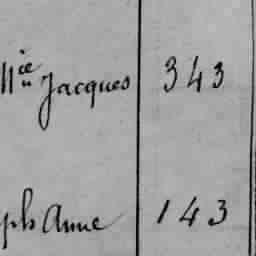 llie Jacques 343
ph Anne 143